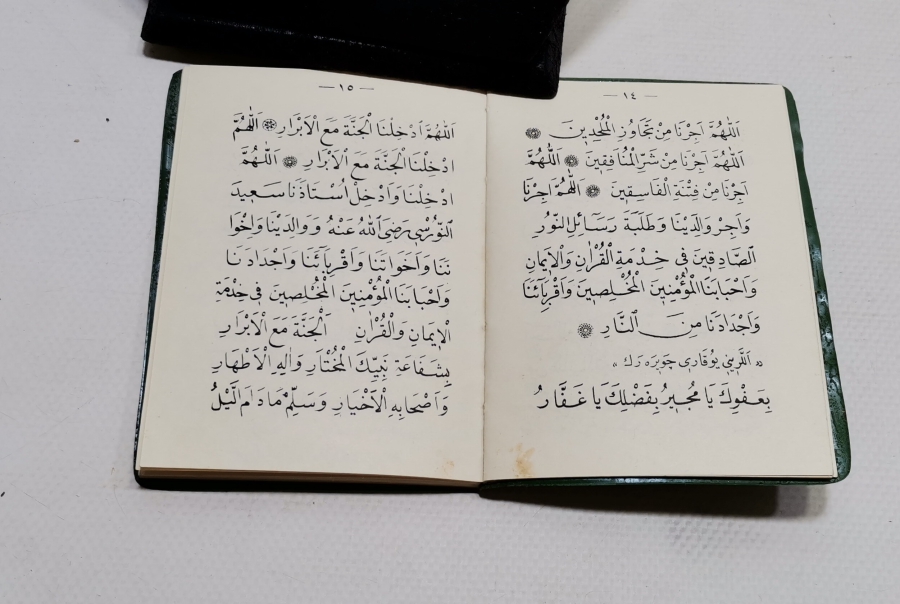 — ١٤ —
اَللّٰهُمَّ اَجِرْنَا مِنْ تَجَاوُزِ الْمُلْحِدِينَ ۞
اَللّٰهُمَّ اَجِرْنَا مِنْ شَرِّ الْمُنَافِقِينَ ۞ اَللّٰهُمَّ
اَجِرْنَا مِنْ فِتْنَةِ الْفَاسِقِينَ ۞ اَللّٰهُمَّ اَجِرْنَا
وَاَجِرْ وَالِدَيْنَا وَطَلَبَةَ رَسَائِلِ النُّورِ
الصَّادِقِينَ فِى خِدْمَةِ الْقُرْاٰنِ وَالْاِيمَانِ
وَاَحْبَابَنَا الْمُؤْمِنِينَ الْمُخْلِصِينَ وَاَقْرِبَائَنَا
وَاَجْدَادَنَا مِنَ النَّارِ ۞
« اَللَّرِينِى يُوقَارِى چَوِيرَهرَكْ »
بِعَفْوِكَ يَا مُجِيرُ بِفَضْلِكَ يَا غَفَّارُ
— ١٥ —
اَللّٰهُمَّ اَدْخِلْنَا الْجَنَّةَ مَعَ الْاَبْرَارِ ۞ اَللّٰهُمَّ
اَدْخِلْنَا الْجَنَّةَ مَعَ الْاَبْرَارِ ۞ اَللّٰهُمَّ
اَدْخِلْنَا وَاَدْخِلْ اُسْتَاذَنَا سَعِيدَ
النُّورْسِى رَضِىَ اللّٰهُ عَنْهُ وَوَالِدَيْنَا وَاِخْوَا
نَنَا وَاَخَوَاتَنَا وَاَقْرِبَائَنَا وَاَجْدَادَنَا
وَاَحْبَابَنَا الْمُؤْمِنِينَ الْمُخْلِصِينَ فِى خِدْمَةِ
الْاِيمَانِ وَالْقُرْاٰنِ اَلْجَنَّةَ مَعَ الْاَبْرَارِ
بِشَفَاعَةِ نَبِيِّكَ الْمُخْتَارِ وَاٰلِهِ الْاَطْهَارِ
وَاَصْحَابِهِ الْاَخْيَارِ وَسَلِّمْ مَادَامَ الَّيْلُ